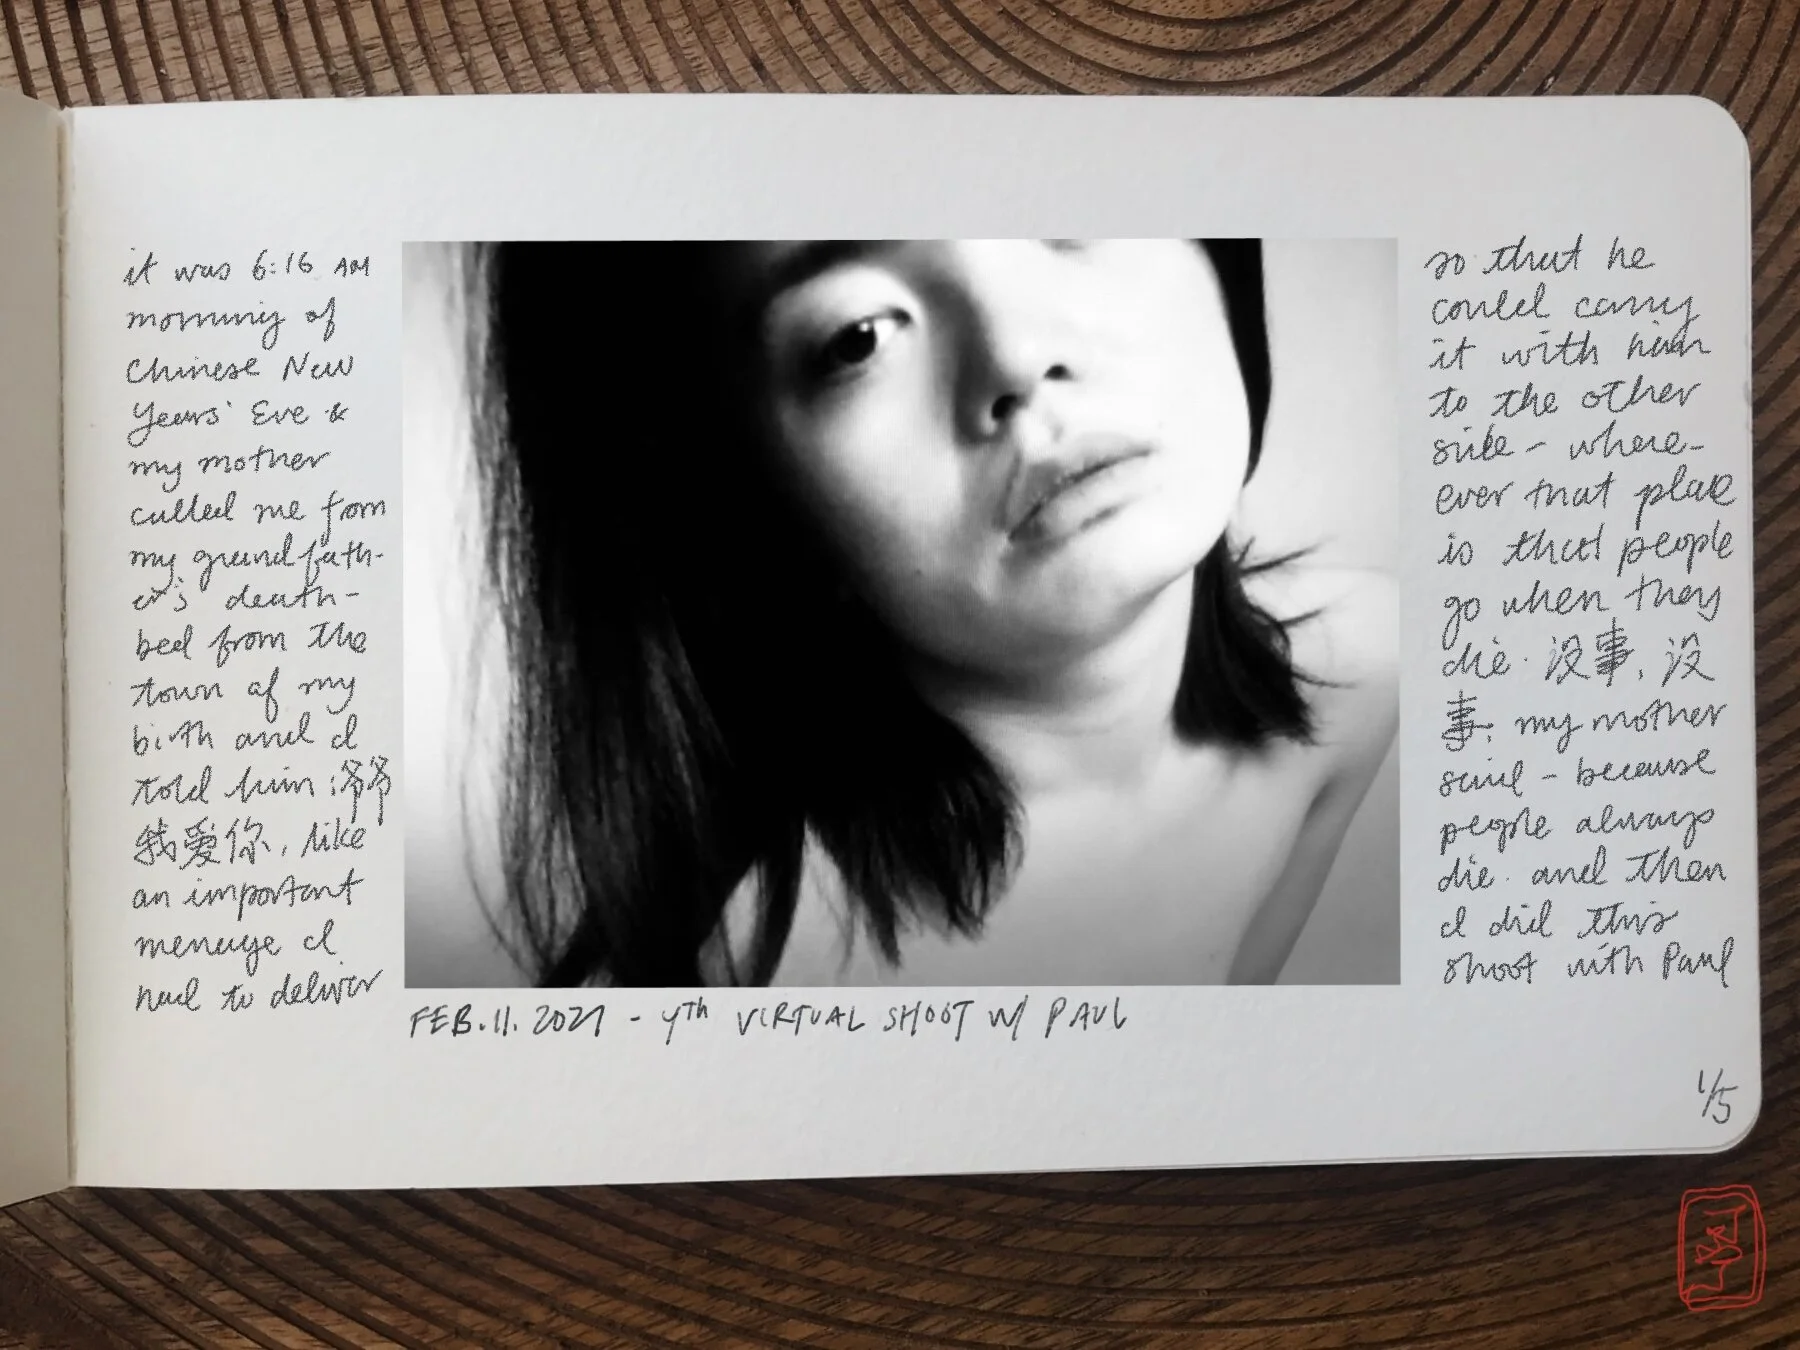 it was 6:16 AM
morning of
Chinese New
Years' Eve &
my mother
called me from
my grandfath-
er's death-
bed from the
town of my
birth and I
told him: 爷爷
我爱你, like
an important
message I
had to deliver
so that he
could carry
it with him
to the other
side - where-
ever that place
is that people
go when they
die. 没事, 没
事. my mother
said - because
people always
die. and then
I did this
shoot with Paul
FEB. 11. 2021 - 4th VIRTUAL SHOOT W/ PAUL
1/5